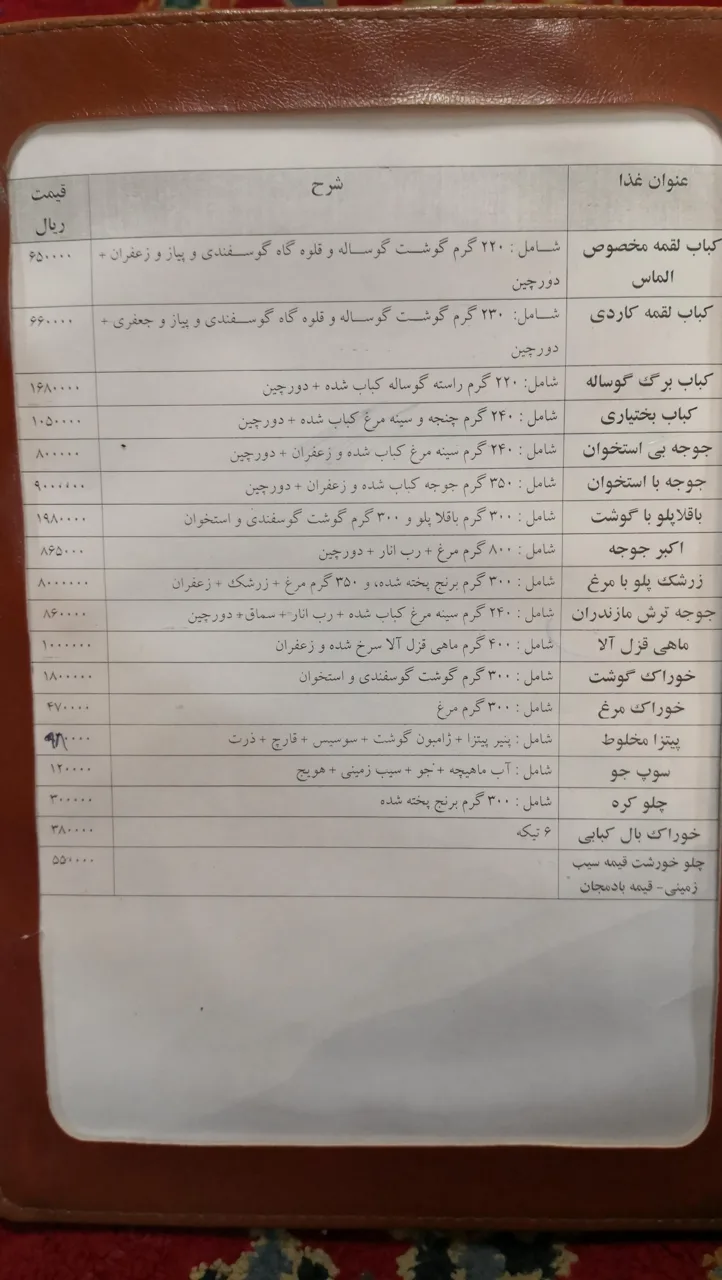 عنوان غذا شرح قیمت
ریال
کباب لقمه مخصوص شامل : ۲۲۰ گرم گوشت گوساله و قلوه گاه گوسفندی و پیاز و زعفران + ۶۵۰۰۰۰
الماس دورچین
کباب لقمه کاردی شامل: ۲۳۰ گرم گوشت گوساله و قلوه گاه گوسفندی و پیاز و جعفری + ۶۶۰۰۰۰
دورچین
کباب برگ گوساله شامل: ۲۲۰ گرم راسته گوساله کباب شده + دورچین ۱۶۸۰۰۰۰
کباب بختیاری شامل : ۲۴۰ گرم چنجه و سینه مرغ کباب شده + دورچین ۱۰۵۰۰۰۰
جوجه بی استخوان شامل : ۲۴۰ گرم سینه مرغ کباب شده و زعفران + دورچین ۸۰۰۰۰۰
جوجه با استخوان شامل : ۳۵۰ گرم جوجه کباب شده و زعفران + دورچین
باقلاپلو با گوشت شامل : ۳۰۰ گرم باقلا پلو و ۳۰۰ گرم گوشت گوسفندی و استخوان ۱۹۸۰۰۰۰
اکبر جوجه شامل : ۸۰۰ گرم مرغ + رب انار + دورچین ۸۶۵۰۰۰
زرشک پلو با مرغ شامل : ۳۰۰ گرم برنج پخته شده، و ۳۵۰ گرم مرغ + زرشک + زعفران ۸۰۰۰۰۰۰
جوجه ترش مازندران شامل : ۲۴۰ گرم سینه مرغ کباب شده + رب انار + سماق+ دورچین ۸۶۰۰۰۰
ماهی قزل آلا شامل : ۴۰۰ گرم ماهی قزل آلا سرخ شده و زعفران ۱۰۰۰۰۰۰
خوراک گوشت شامل : ۳۰۰ گرم گوشت گوسفندی و استخوان ۱۸۰۰۰۰۰
خوراک مرغ شامل : ۳۰۰ گرم مرغ ۴۷۰۰۰۰
پیتزا مخلوط شامل : پنیر پیتزا + ژامبون گوشت + سوسیس + قارچ + ذرت
سوپ جو شامل : آب ماهیچه + جو + سیب زمینی + هویج ۱۲۰۰۰۰
چلو کره شامل : ۳۰۰ گرم برنج پخته شده ۳۰۰۰۰۰
خوراک بال کبابی ۶ تیکه ۳۸۰۰۰۰
چلو خورشت قیمه سیب ۵۵۰۰۰۰
زمینی- قیمه بادمجان